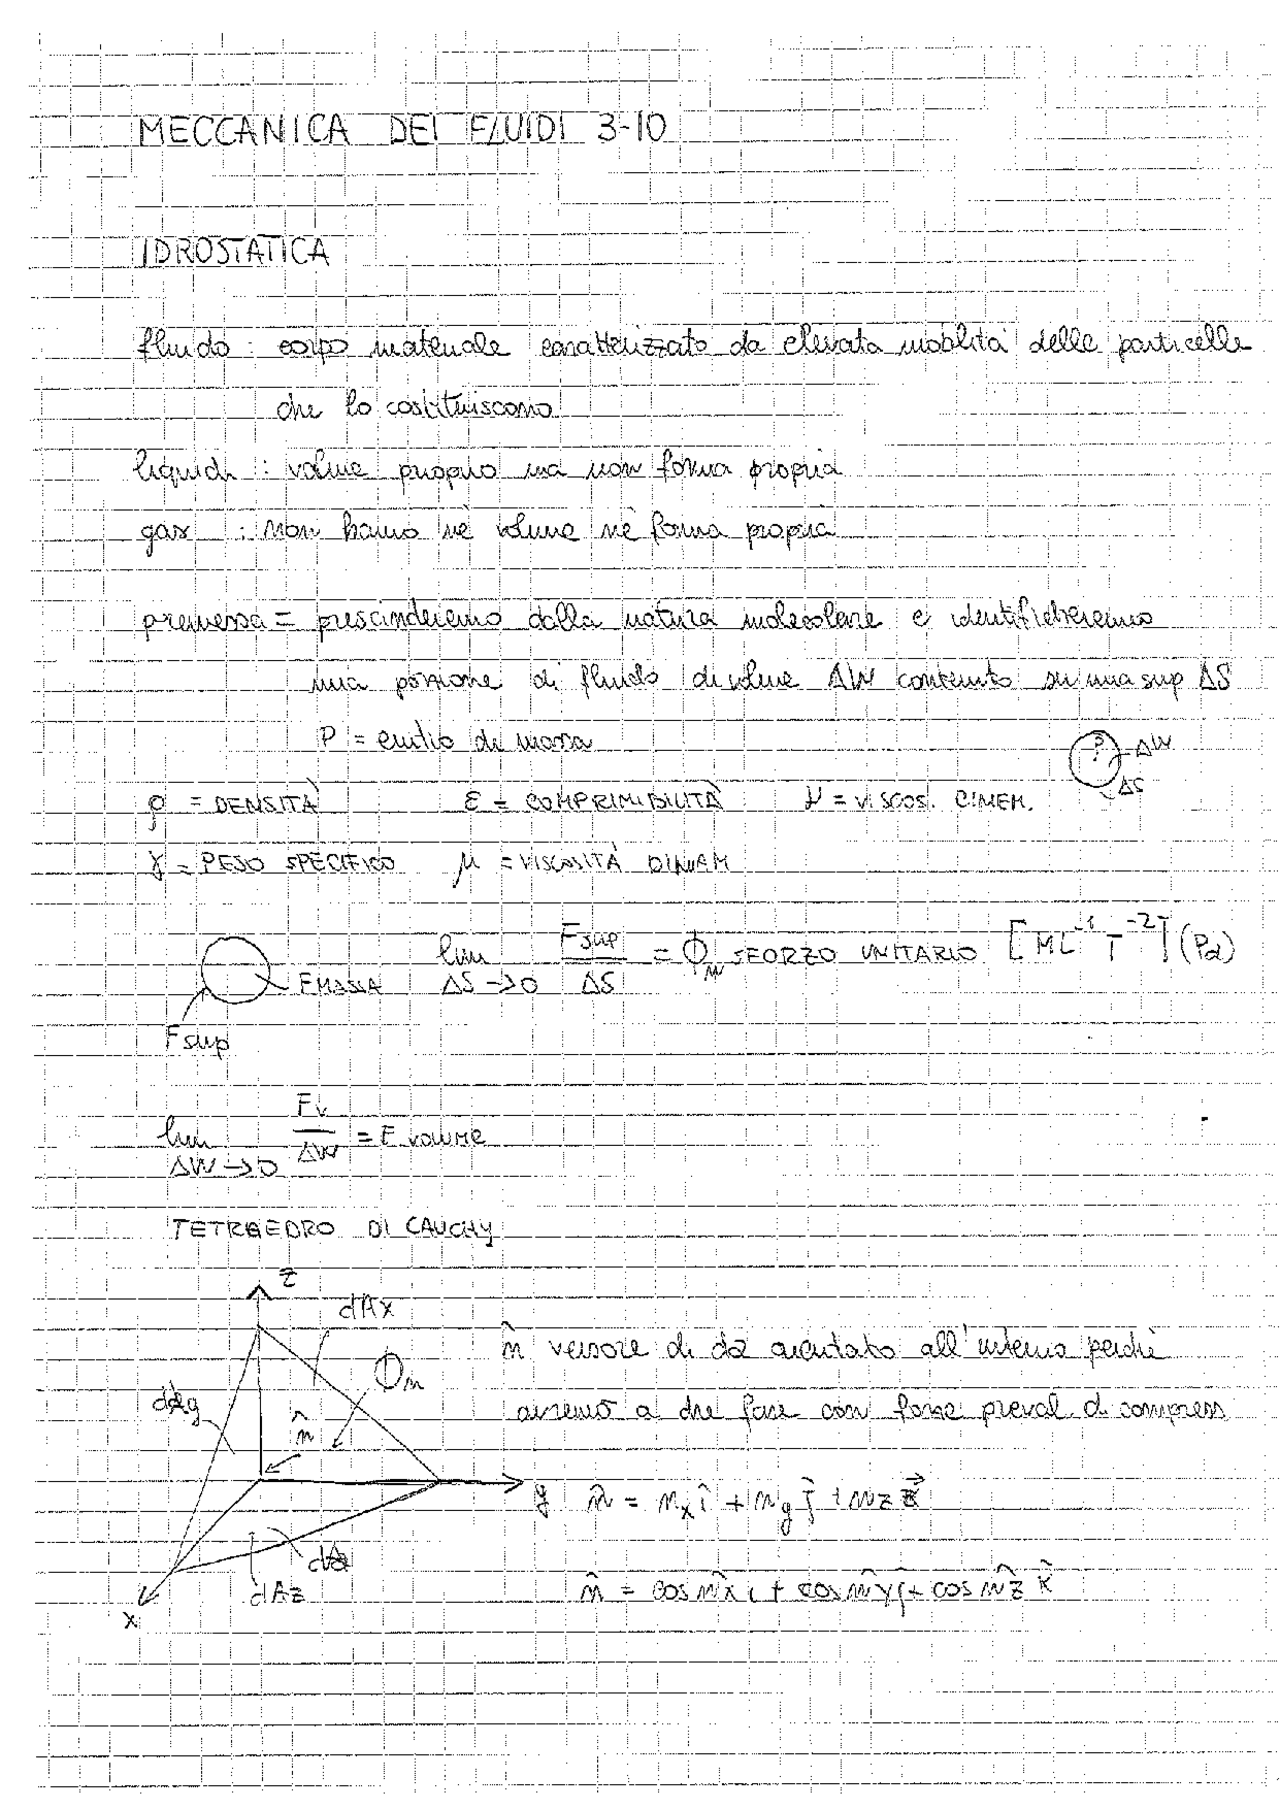 MECCANICA DEI FLUIDI 3-10
IDROSTATICA
fluido : corpo materiale caratterizzato da elevata mobilità delle particelle
che lo costituiscono
liquidi : volume proprio ma non forma propria
gas : non hanno nè volume nè forma propria
premessa = prescinderemo dalla natura molecolare e identificheremo
una porzione di fluido di volume ΔW contenuto su una sup ΔS
P = centro di massa
P ΔW
ΔS
ρ = DENSITÀ ε = COMPRIMIBILITÀ ν = VISCOS. CINEM.
γ = PESO SPECIFICO μ = VISCOSITÀ DINAM
lim ΔS→0 Fsup/ΔS = Φn SFORZO UNITARIO [ML⁻¹T⁻²] (Pa)
F MASSA
Fsup
lim ΔW→0 Fv/ΔW = F VOLUME
TETRAEDRO DI CAUCHY
z
dAx
n̂ versore di da orientato all'interno perchè
Φn
dAy
n̂
avremo a che fare con forze preval. di compress
y n̂ = nx î + ny ĵ + nz k
dA
dAz
n̂ = cos n̂x i + cos n̂y j + cos n̂z k̂
x